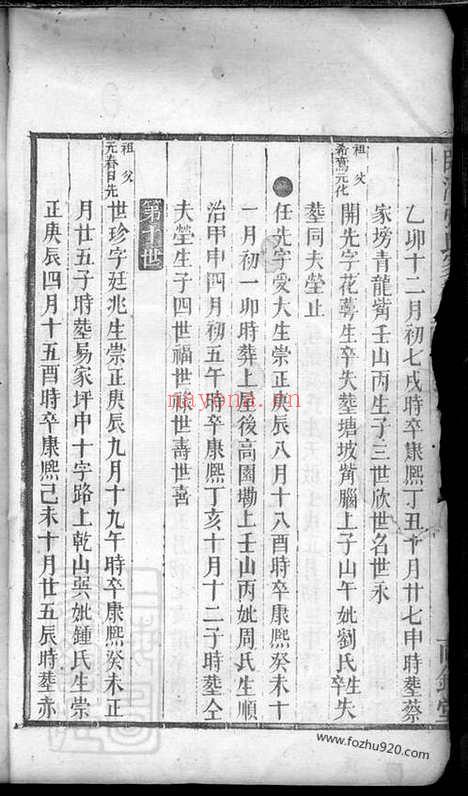 乙卯十二月初七戌時卒康熙丁丑十月廿七申時塟蔡
家塝青龍觜壬山丙生子三世欣世名世永
祖 父
希鸞元化
開先字花蕚生卒失塟塘坡觜腦上子山午妣劉氏生卒失
塟同夫塋止
任先字受大生崇正庚辰八月十八酉時卒康熙癸未十
一月初一卯時葬上屋後高園墈上壬山丙妣周氏生順
治甲申四月初五午時卒康熙丁亥十月十二子時塟仝
夫塋生子四世福世祿世壽世善
第十世
祖 父
元春日先
世珍字廷兆生崇正庚辰九月十九午時卒康熙癸未正
月廿五子時塟易家坪申十字路上乾山巽妣鍾氏生崇
正庚辰四月十五酉時卒康熙己未十月廿五辰時塟亦
nayona.cn
www.fozhu920.com